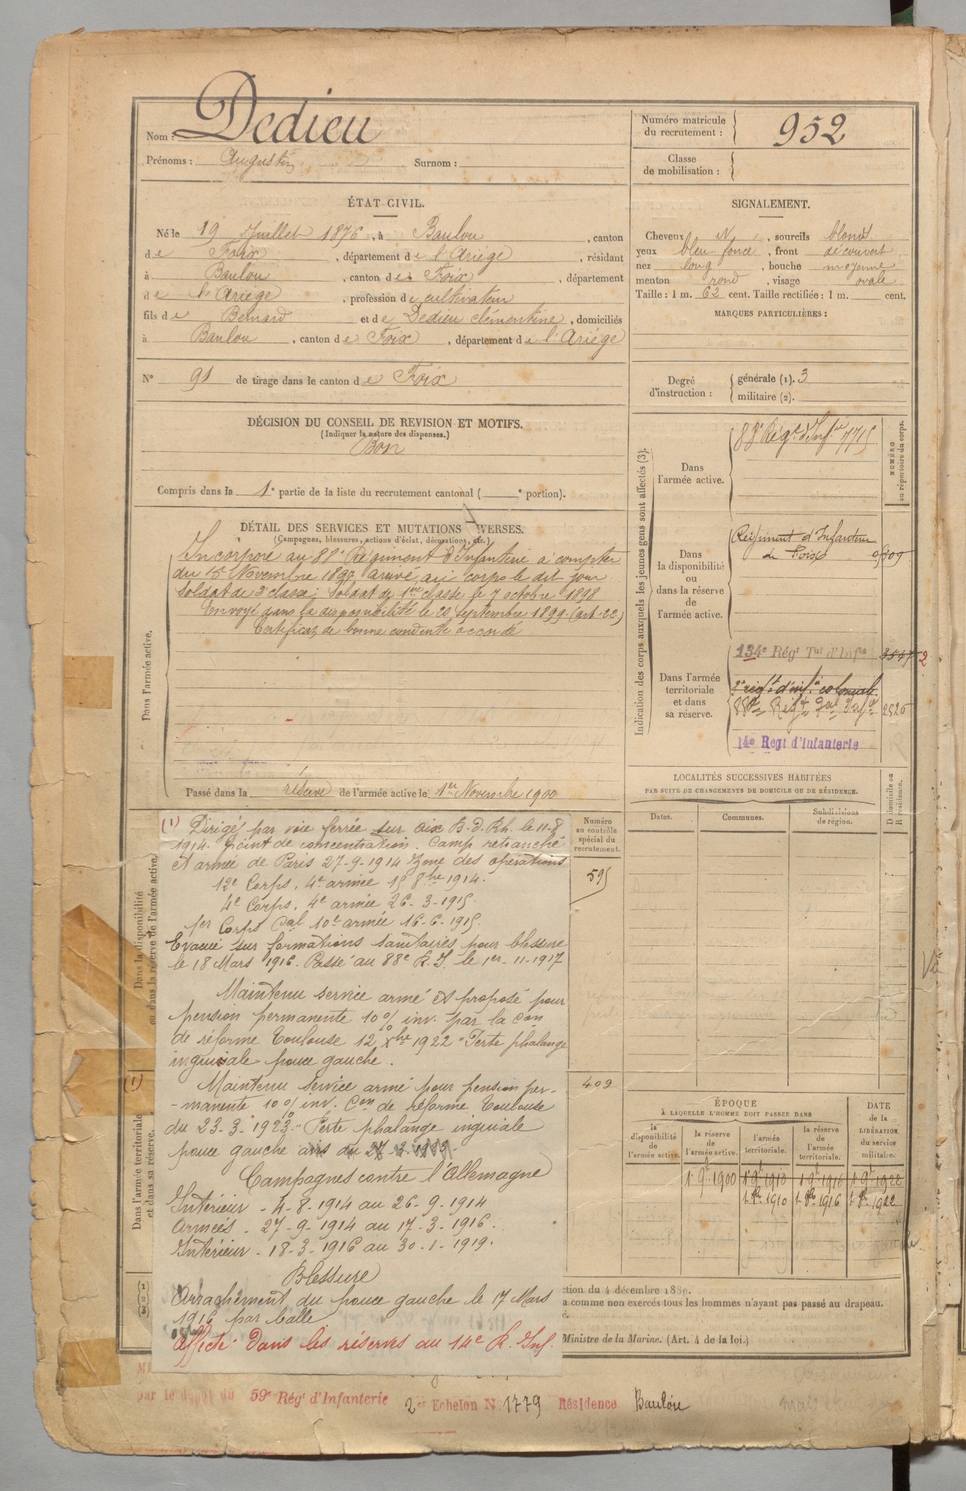 Nom : Dedieu
Prénoms : Augustin Surnom :
Numéro matricule du recrutement : 952
Classe de mobilisation :
ÉTAT CIVIL.
Né le 19 Juillet 1876, à Baulou, canton
de Foix, département de l'Ariège, résidant
à Baulou, canton de Foix, département
de l'Ariège, profession de cultivateur
fils de Bernard et de Dedieu Clémentine, domiciliés
à Baulou, canton de Foix, département de l'Ariège
N° 91 de tirage dans le canton de Foix
SIGNALEMENT.
Cheveux N, sourcils blonds
yeux bleu foncé, front découvert
nez long, bouche moyenne
menton rond, visage ovale
Taille : 1 m. 62 cent. Taille rectifiée : 1 m. cent.
MARQUES PARTICULIÈRES :
Degré d'instruction : générale (1). 3
militaire (2).
DÉCISION DU CONSEIL DE REVISION ET MOTIFS.
(Indiquer la nature des dispenses.)
Bon
Compris dans la 1e partie de la liste du recrutement cantonal ( e portion).
DÉTAIL DES SERVICES ET MUTATIONS VERSES.
(Campagnes, blessures, actions d'éclat, décorations, etc.)
Incorporé au 88e Régiment d'Infanterie à compter
du 15 Novembre 1897 arrivé au corps le dit jour
Soldat de 2e classe, Soldat de 1ère classe le 7 octobre 1898
Envoyé dans la disponibilité le 20 Septembre 1899 (art.
Certificat de bonne conduite accordé
Dans l'armée active.
Passé dans la réserve de l'armée active le 1er Novembre 1900
Indication des corps auxquels les jeunes gens sont affectés (3).
NUMÉRO au répertoire du corps.
Dans l'armée active.
88e Régt d'Infie 7715
Dans la disponibilité ou dans la réserve de l'armée active.
Régiment d'Infanterie
de Foix
Dans l'armée territoriale et dans sa réserve.
134e Régt Tal d'Infie
Régt d'inf. coloniale
88e Régt d'Infie 2526
14e Regt d'Infanterie
LOCALITÉS SUCCESSIVES HABITÉES
PAR SUITE DE CHANGEMENTS DE DOMICILE OU DE RÉSIDENCE.
Dates. Communes. Subdivisions de région. D domicile ou R résidence.
Numéro au contrôle spécial du recrutement.
595
409
Dans la disponibilité
ou dans la réserve de l'armée active.
(1)
Dans l'armée territoriale
et dans sa réserve.
(1) Dirigé par voie ferrée sur Aix B. d. Rh. le 11-8
1914. Point de concentration. Camp retranché
et armée de Paris 27-9-1914 Zone des opérations
12e Corps, 4e armée 15 8bre 1914.
4e Corps, 4e armée 26-3-1915
1er Corps Cal 10e armée 16-6-1915.
Evacué sur formations sanitaires pour blessure
le 18 Mars 1916. Passé au 88e R.I. le 1er-11-1917
Maintenu service armé et proposé pour
pension permanente 10% inv. par la Con
de réforme Toulouse 12 Xbre 1922 "Perte phalange
inguéale pouce gauche.
Maintenu service armé pour pension per-
-manente 10% inv. Con de réforme Toulouse
du 23-3-1923 "Perte phalange inguéale
pouce gauche
Campagnes contre l'Allemagne
Intérieur - 4-8-1914 au 26-9-1914
Armées - 27-9-1914 au 17-3-1916.
Intérieur - 18-3-1916 au 30-1-1919.
Blessure
Arrachement du pouce gauche le 17 Mars
1916 par balle
Affecté dans les réserves au 14e R. Inf.
ÉPOQUE
À LAQUELLE L'HOMME DOIT PASSER DANS
la disponibilité de l'armée active.
la réserve de l'armée active.
l'armée territoriale.
la réserve de l'armée territoriale.
DATE de la LIBÉRATION du service militaire.
1 9e 1900 1 9e 1910 1 9e 1916 1 9e 1922
1 8e 1910 1 8e 1916 1 8e 1922
ction du 4 décembre 1889.
a comme non exercés tous les hommes n'ayant pas passé au drapeau.
Ministre de la Marine. (Art. 4 de la loi.)
par le dépôt du 59e Régt d'Infanterie 2e Echelon N° 1779 Résidence Baulou